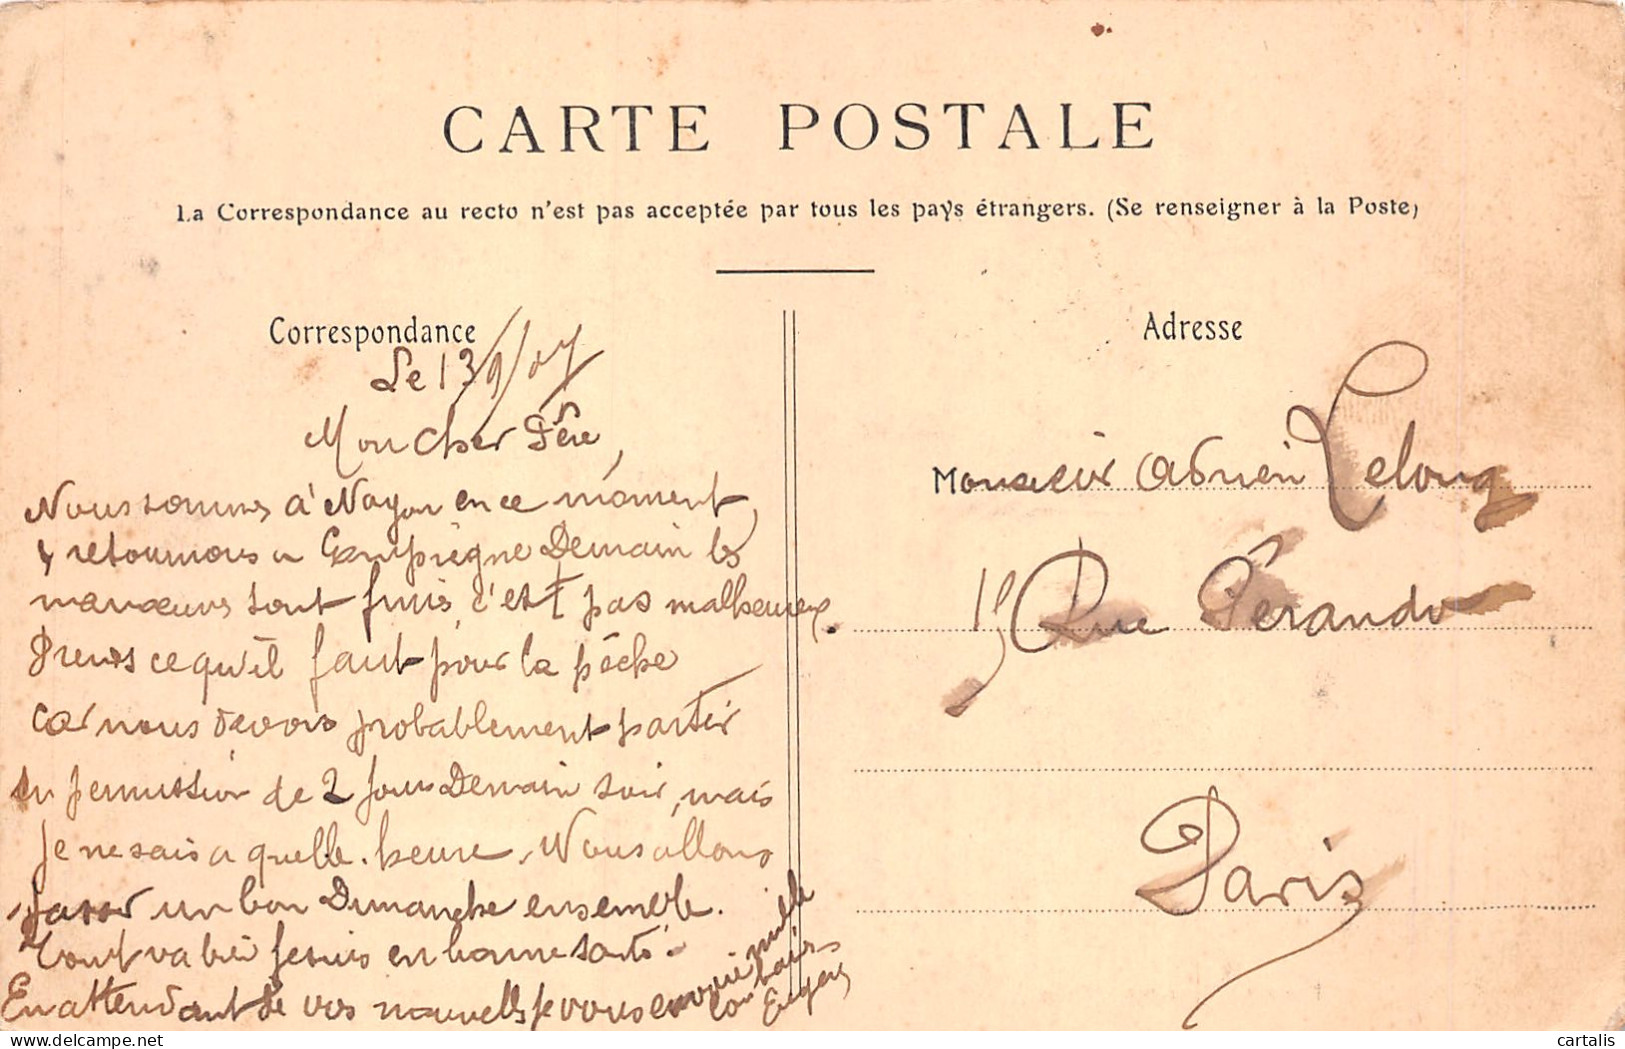 CARTE POSTALE
La Correspondance au recto n'est pas acceptée par tous les pays étrangers. (Se renseigner à la Poste)
Correspondance
Le 13/9/07
Mon cher Père,
Nous sommes à Noyon en ce moment
& retournons a Compiègne Demain les
manœuvres sont finis, c'est pas malheureux.
Prends ce qu'il faut pour la pêche
car nous devons probablement partir
en permission de 2 jours Demain soir, mais
je ne sais a quelle heure. Nous allons
passer un bon Dimanche ensemble.
Tout va bien je suis en bonne santé.
En attendant de vos nouvelles je vous envoie mille
bons baisers
Eugène
Adresse
Monsieur Adrien Lelong
15 Rue Férando
Paris
cartalis
delcampe.net